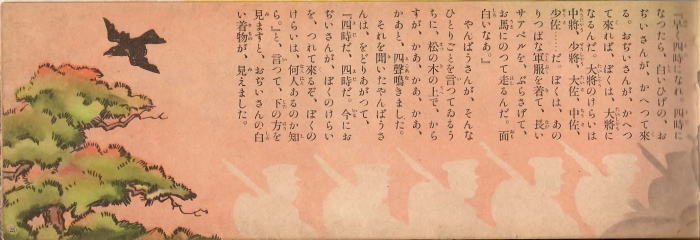 「早く四時になれ。四時に
なつたら、白いひげの、お
ぢいさんが、かへつて來
る。おぢいさんが、かへつ
て來れば、ぼくは、大將に
なるんだ。大將のけらいは
中將、少將、大佐、中佐、
少佐……だ。ぼくは、あの
りつぱな軍服を着て、長い
サアベルを、ぶらさげて、
お馬にのつて通るんだ。面
白いなあ。』
やんぼうさんが、そんな
ひとりごとを言つてゐるう
ちに、松の木の上で、から
すが、かあ、かあ、かあ、
かあと、四聲鳴きました。
それを聞いたやんぼうさ
んは、をどりあがつて、
『四時だ、四時だ。今にお
ぢいさんが、ぼくのけらい
を、つれて來るぞ、ぼくの
けらいは、何人あるのか知
ら。』と、言つて、下の方を
見ますと、おぢいさんの白
い着物が、見えました。